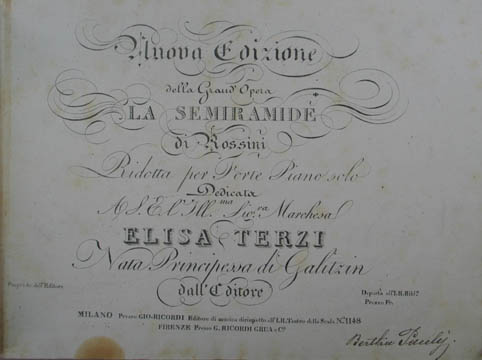 Nuova Edizione
della Grand' Opera
LA SEMIRAMIDE
di Rossini
Ridotta per Forte Piano solo
Dedicata
A S. E. l' Ill.ma Sig.ra Marchesa
ELISA TERZI
Nata Principessa di Galitzin
dall' Editore
Proprietà dell' Editore
Depost.a all' I. R. Bibl.a
Prezzo Fr.
MILANO Presso GIO. RICORDI Editore di musica dirimpetto all' I. R. Teatro della Scala N.º 1148
FIRENZE Presso G. RICORDI GRUA e C.º